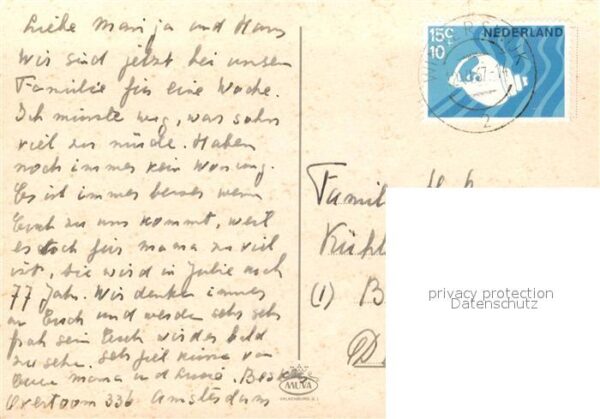 Liebe Marija und Hans
Wir sind jetzt bei unser
Familie für eine Woche.
Ich müsste weg, war sehr
viel zu müde. Haben
noch immer kein Wonung.
Es ist immer besser wenn
Euch zu uns kommt, weil
es doch für mama zu viel
ist, sie wird in Julie noch
77 Jahr. Wir denken immer
an Euch und werden sehr sehr
froh sein Euch wieder bald
zu sehen. Seh fiel küsse von
Eure mama und
Overtoom 336 Amsterdam
15c
+10
NEDERLAND
Famil
Kühl
(1) B
privacy protection
Datenschutz
MUVA
VALKENBURG (L.)